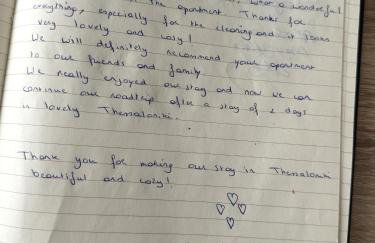 the apartment. Thanks for
everything, especially for the cleaning and it looks
very lovely and cozy!
We will definitely recommend your apartment
to our friends and family
We really enjoyed our stay and now we can
continue our roadtrip after a stay of 2 days
in lovely Thessaloniki.
Thank you for making our stay in Thessaloniki
beautiful and cozy!